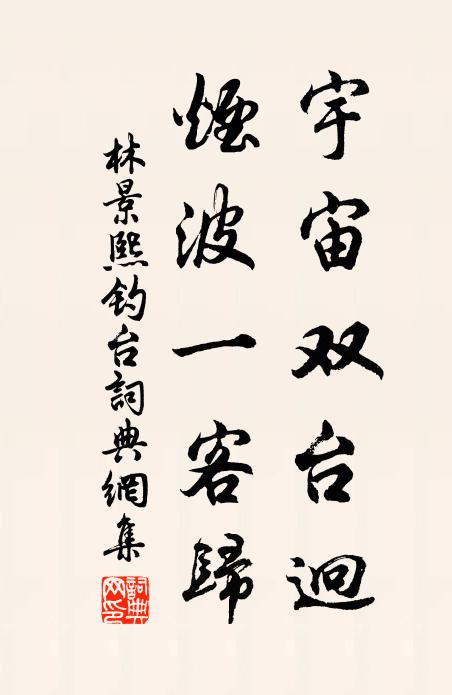 宇宙双台迥
煙波一客歸
林景熙钓台詞典網集
詞典網印